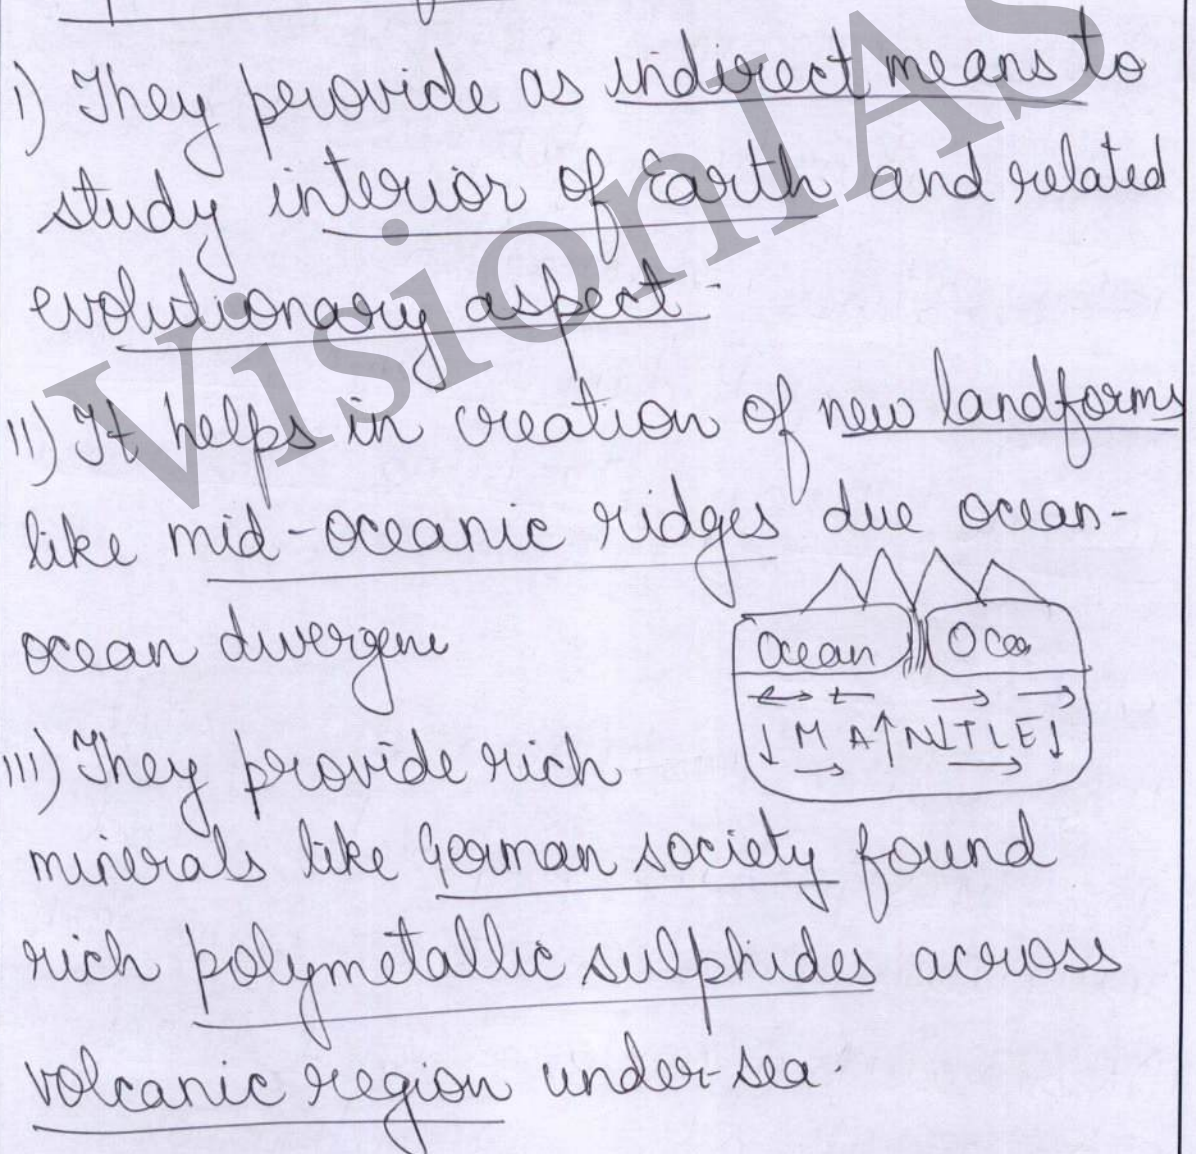 i) They provide as indirect means to
study interior of Earth and related
evolutionary aspect.
ii) It helps in creation of new landforms
like mid-oceanic ridges due ocean-
ocean divergene
Ocean Ocea
MANTLE
iii) They provide rich
minerals like German society found
rich polymetallic sulphides across
volcanic region under-sea.
VisionIAS